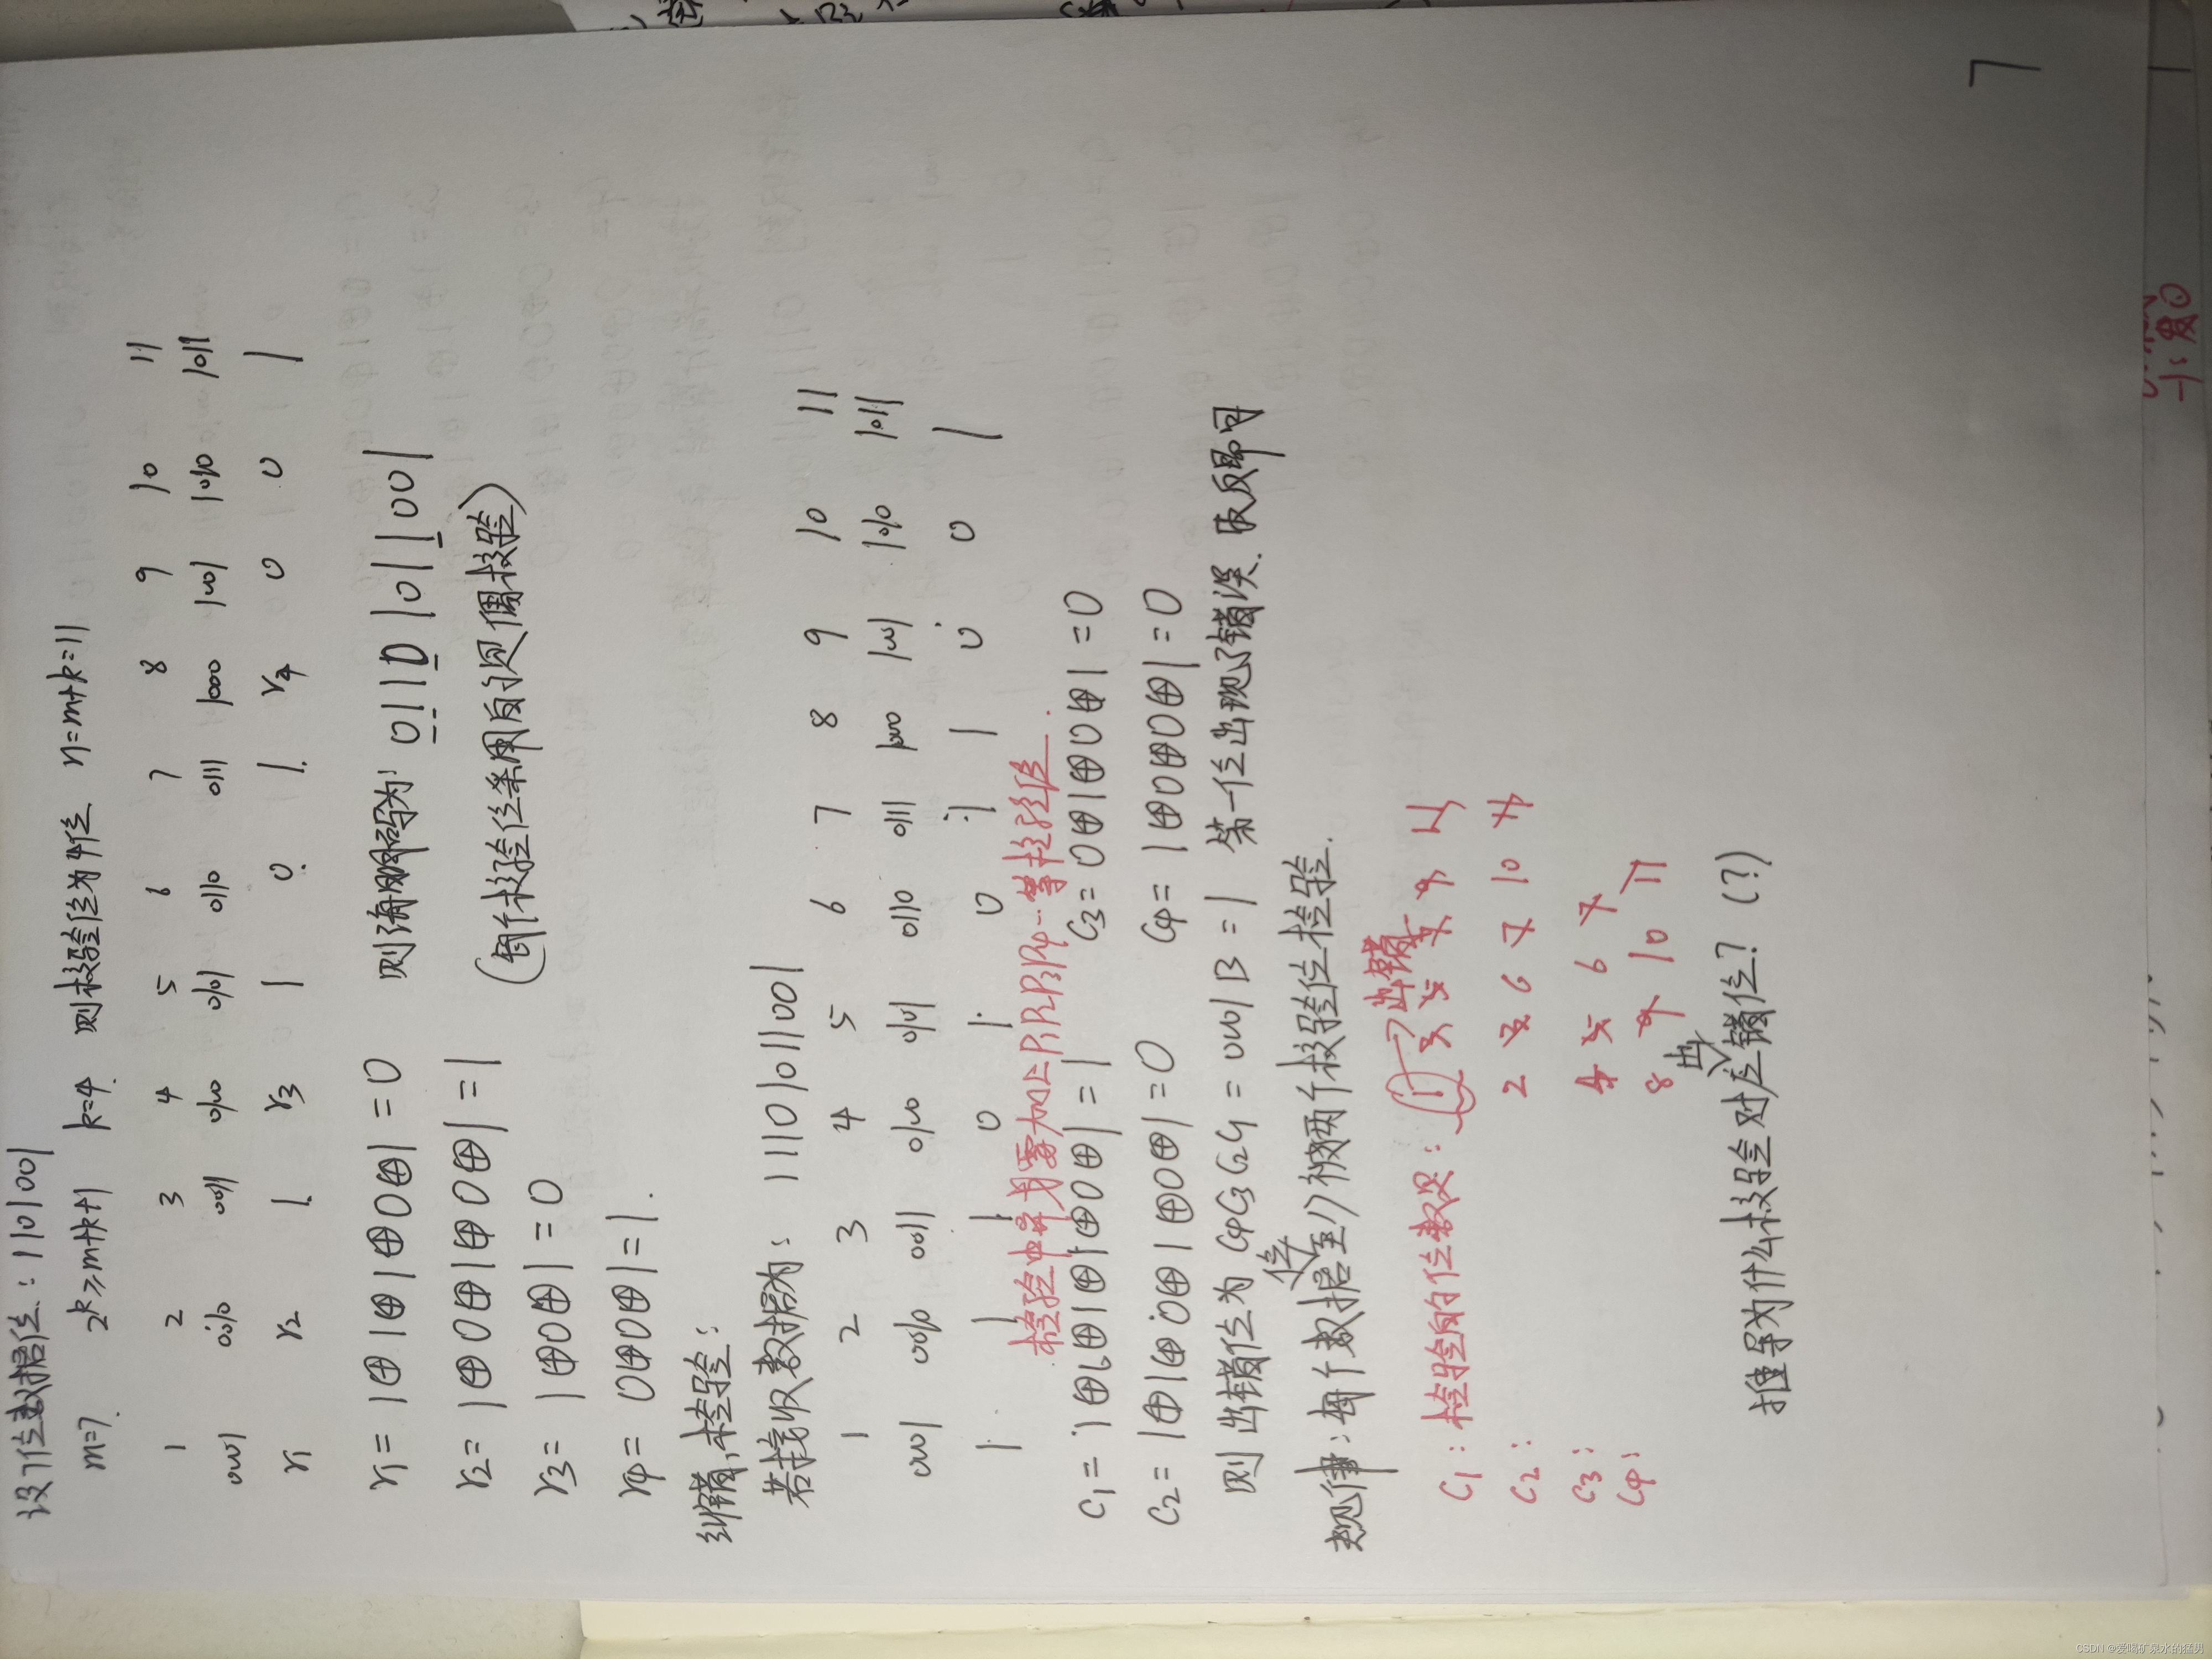 设7位数据位：1101001
m=7. 2^k≥m+k+1 k=4. 则校验位为4位 n=m+k=11
1 2 3 4 5 6 7 8 9 10 11
0001 0010 0011 0100 0101 0110 0111 1000 1001 1010 1011
r1 r2 1 r3 1 0 1 r4 0 0 1
r1= 1⊕1⊕1⊕0⊕1=0 则海明码为: 01101011001
r2= 1⊕0⊕1⊕0⊕1=1 (每个校验位采用的是偶校验)
r3= 1⊕0⊕1=0
r4= 0⊕0⊕1=1.
纠错,检验：
若接收数据为：11101011001
1 2 3 4 5 6 7 8 9 10 11
0001 0010 0011 0100 0101 0110 0111 1000 1001 1010 1011
1 1 1 0 1 0 1 1 0 0 1
检验中需要加上P1P2P3P4
C1= 1⊕1⊕1⊕1⊕0⊕1=1 C3=0⊕1⊕0⊕1=0
C2= 1⊕1⊕0⊕1⊕0⊕1=0 C4= 1⊕0⊕0⊕1=0
则出错位为 C4C3C2C1=0001B=1 第一位出现了错误. 取反即可
规律：每个数据位至少被两个校验位检验.
出错
C1：检验的位数是：1 3 5 7 9 11
C2： 2 3 6 7 10 11
C3： 4 5 6 7
C4： 8 9 10 11
推导为什么校验会对应出错位？(?)
7
CSDN @爱喝矿泉水的猛男